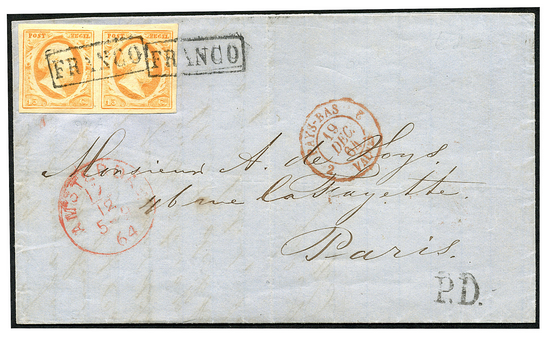 POST ZEGEL POST ZEGEL
FRANCO FRANCO
PAYS-BAS
19
DEC.
64
2
AMSTERDAM
12
5
64
Monsieur A. de
46 rue La Fayette.
Paris.
P.D.